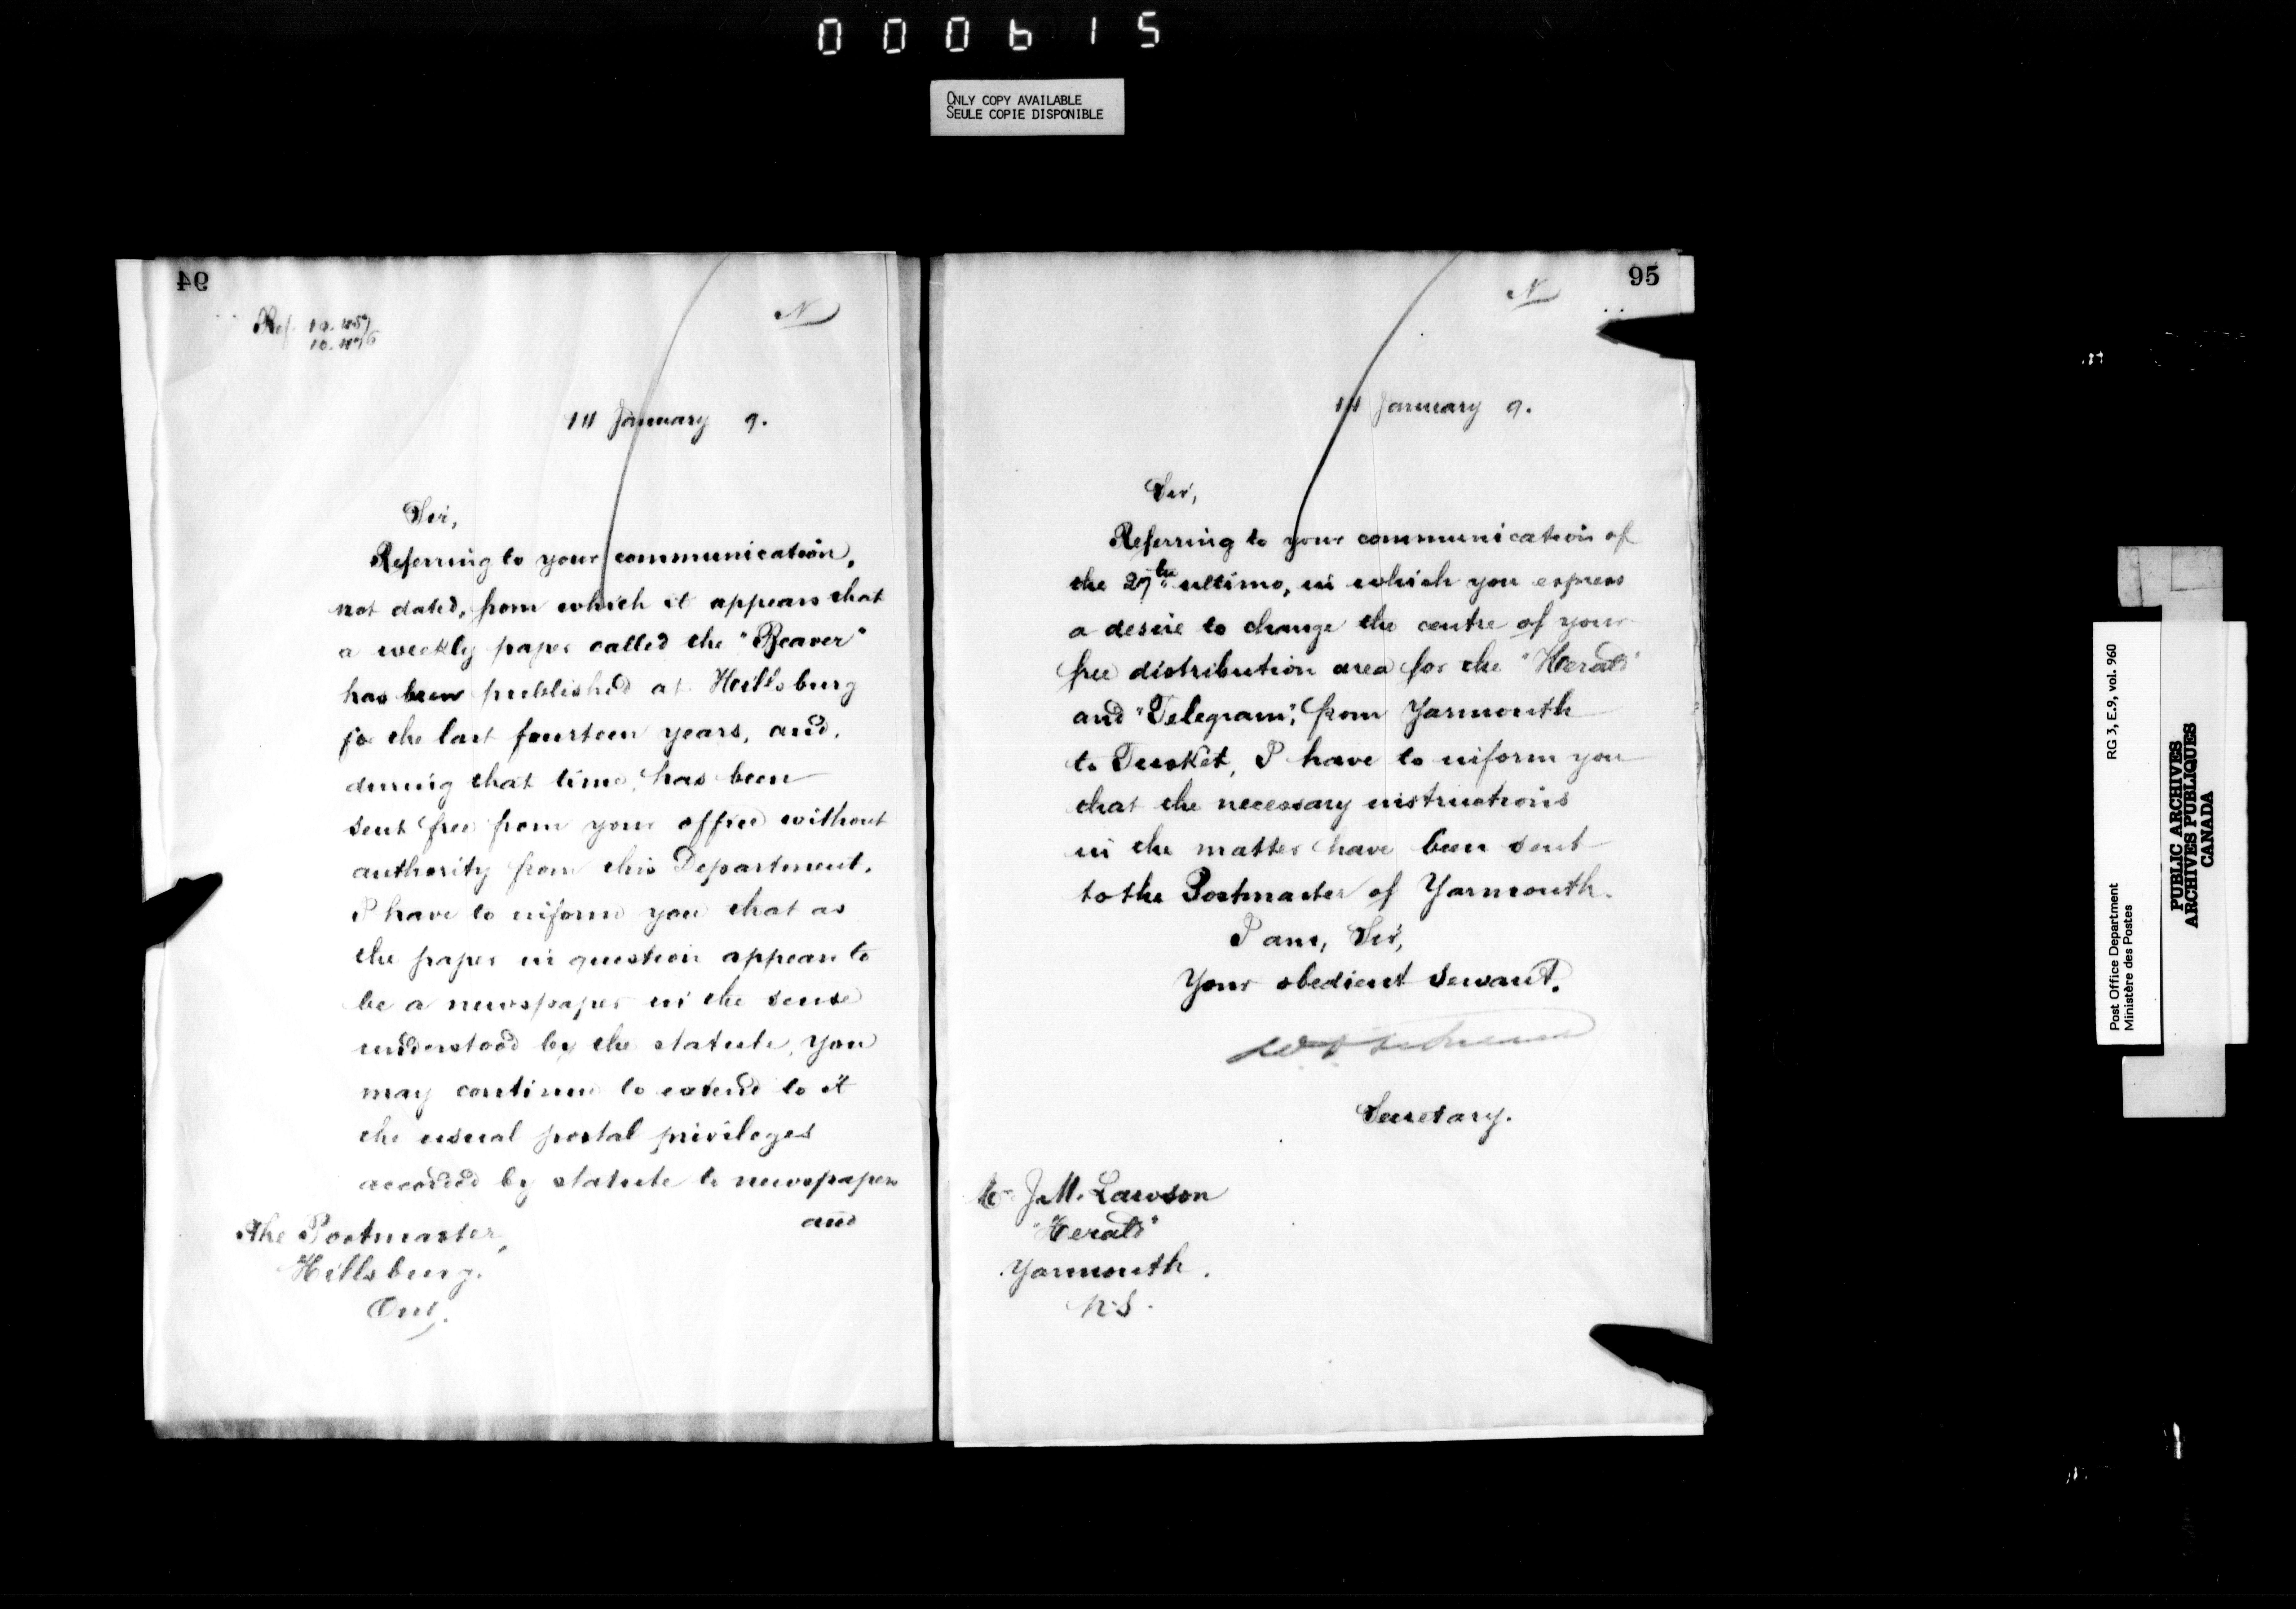 000615
ONLY COPY AVAILABLE
SEULE COPIE DISPONIBLE
94
N
Ref. 10.
10.
January 9.
Sir,
Referring to your communication,
not dated, from which it appears that
a weekly paper called the "Beaver"
has been published at Hillsburg
for the last fourteen years, and,
during that time, has been
sent free from your office without
authority from this Department.
I have to inform you that as
the paper in question appears to
be a newspaper in the sense
understood by the statute, you
may continue to extend to it
the usual postal privileges
accorded by statute to newspapers
and
The Postmaster,
Hillsburg.
Ont.
95
N
January 9.
Sir,
Referring to your communication of
the 27th ultimo, in which you express
a desire to change the centre of your
free distribution area for the "Herald"
and "Telegram", from Yarmouth
to Tusket, I have to inform you
that the necessary instructions
in the matter have been sent
to the Postmaster of Yarmouth.
I am, Sir,
Your obedient servant.
Secretary.
J. M. Lawson
"Herald"
Yarmouth.
N.S.
Post Office Department
Ministère des Postes
RG 3, E.9, vol. 960
PUBLIC ARCHIVES
ARCHIVES PUBLIQUES
CANADA